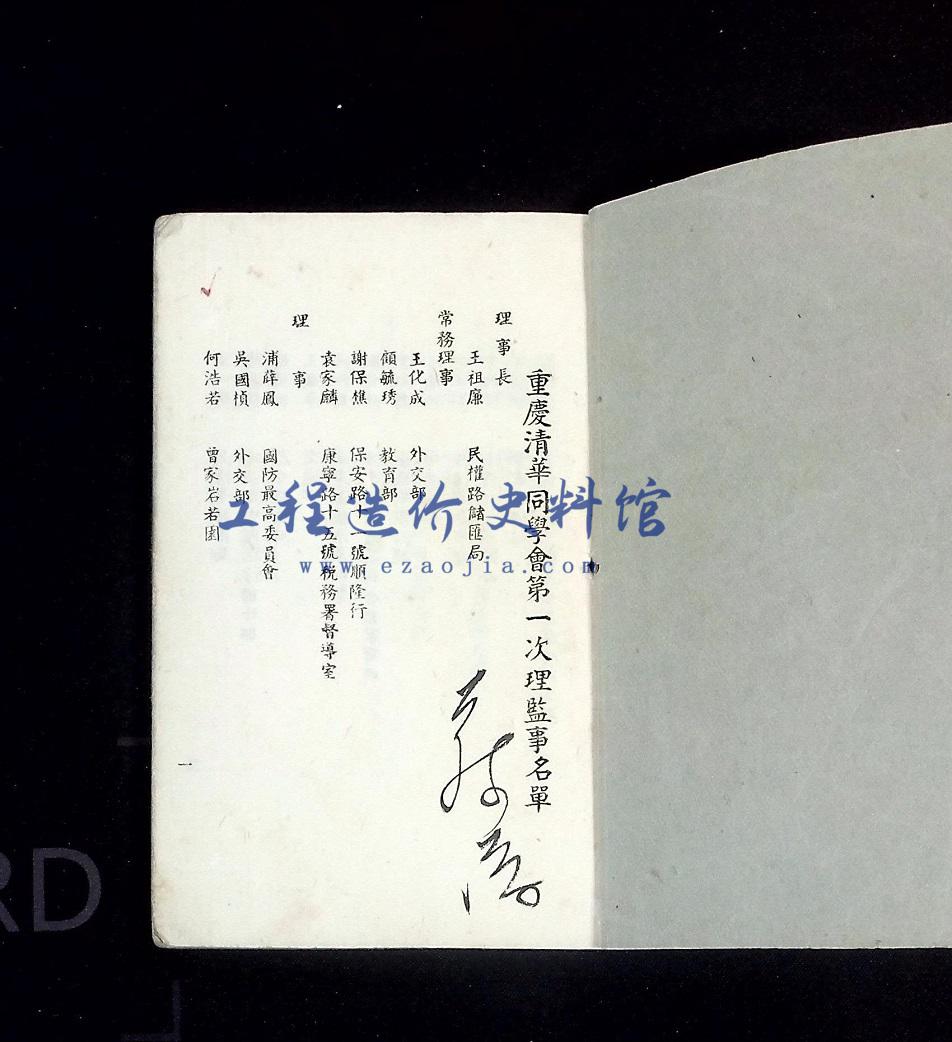 重慶清華同學會第一次理監事名單
理事長
王祖廉 民權路儲匯局
常務理事
王化成 外交部
顧毓琇 教育部
謝保樵 保安路十一號順隆行
袁家麟 康寧路十五號稅務署督導室
理事
浦薛鳳 國防最高委員會
吳國楨 外交部
何浩若 曾家岩若園
一
工程造价史料馆
www.ezaojia.com
RD